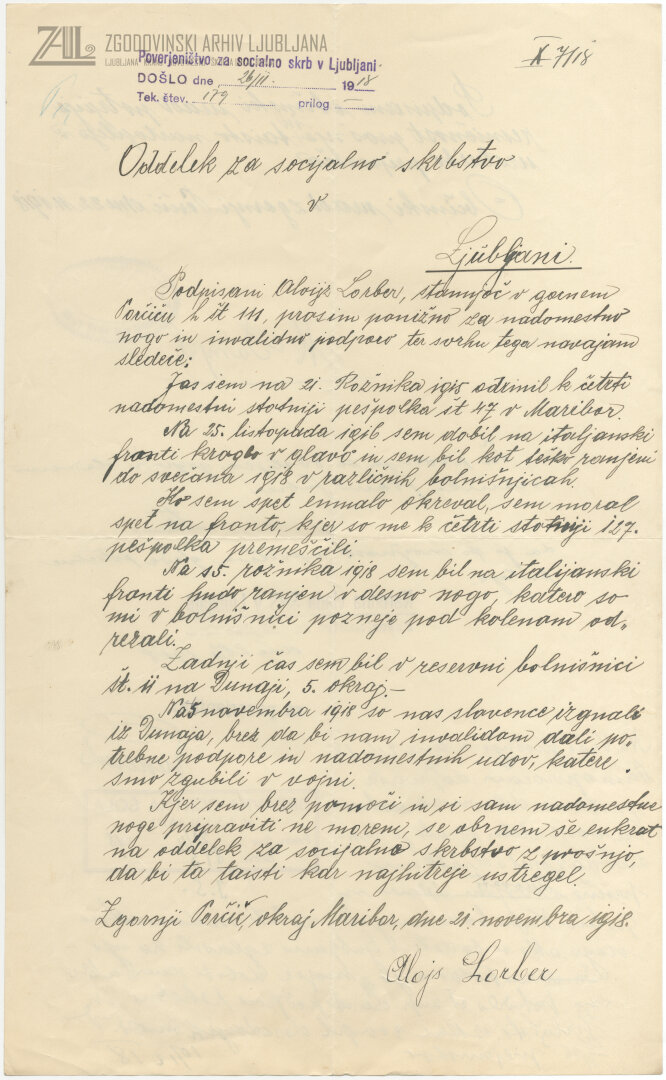 ZAL ZGODOVINSKI ARHIV LJUBLJANA
X 7/18
Poverjeništvo za socialno skrb v Ljubljani
DOŠLO dne 26/XI. 1918
Tek. štev. 179 prilog —
Oddelek za socijalno skrbstvo
v
Ljubljani.
Podpisani Alojz Lorber, stanujoč v gornem
Porčiču h. št 111, prosim ponižno za nadomestno
nogo in invalidno podporo ter svrhu tega navajam
sledeče:
Jas sem na 21. Rožnika 1915 odrinil k četrti
nadomestni stotniji pešpolka št 47 v Maribor.
Na 25. listopada 1916 sem dobil na italjanski
fronti kroglo v glavo in sem bil kot teško ranjeni
do svečana 1918 v različnih bolnišnjicah
Ko sem spet enmalo okreval, sem moral
spet na fronto, kjer so me k četrti stotniji 127.
pešpolka premeščili.
Na 15. rožnika 1918 sem bil na italijanski
fronti hudo ranjen v desno nogo, katero so
mi v bolnišnici pozneje pod kolenom od-
rezali.
Zadnji čas sem bil v reservni bolnišnici
Št. 11 na Dunaji, 5. okraj.-
Na 5 novembra 1918 so nas slavence izgnali
iz Dunaja, brez da bi nam invalidom dali po-
trebne podpore in nadomestnih udov, katere
smo zgubili v vojni.
Kjer sem brez pomoči in si sam nadomestne
noge pripraviti ne morem, se obrnem še enkrat
na oddelek za socijalno skrbstvo z prošnjo,
da bi ta taisti kar najhitreje ustregel.
Zgornji Porčič, okraj Maribor, dne 21 novembra 1918.
Alojs Lorber